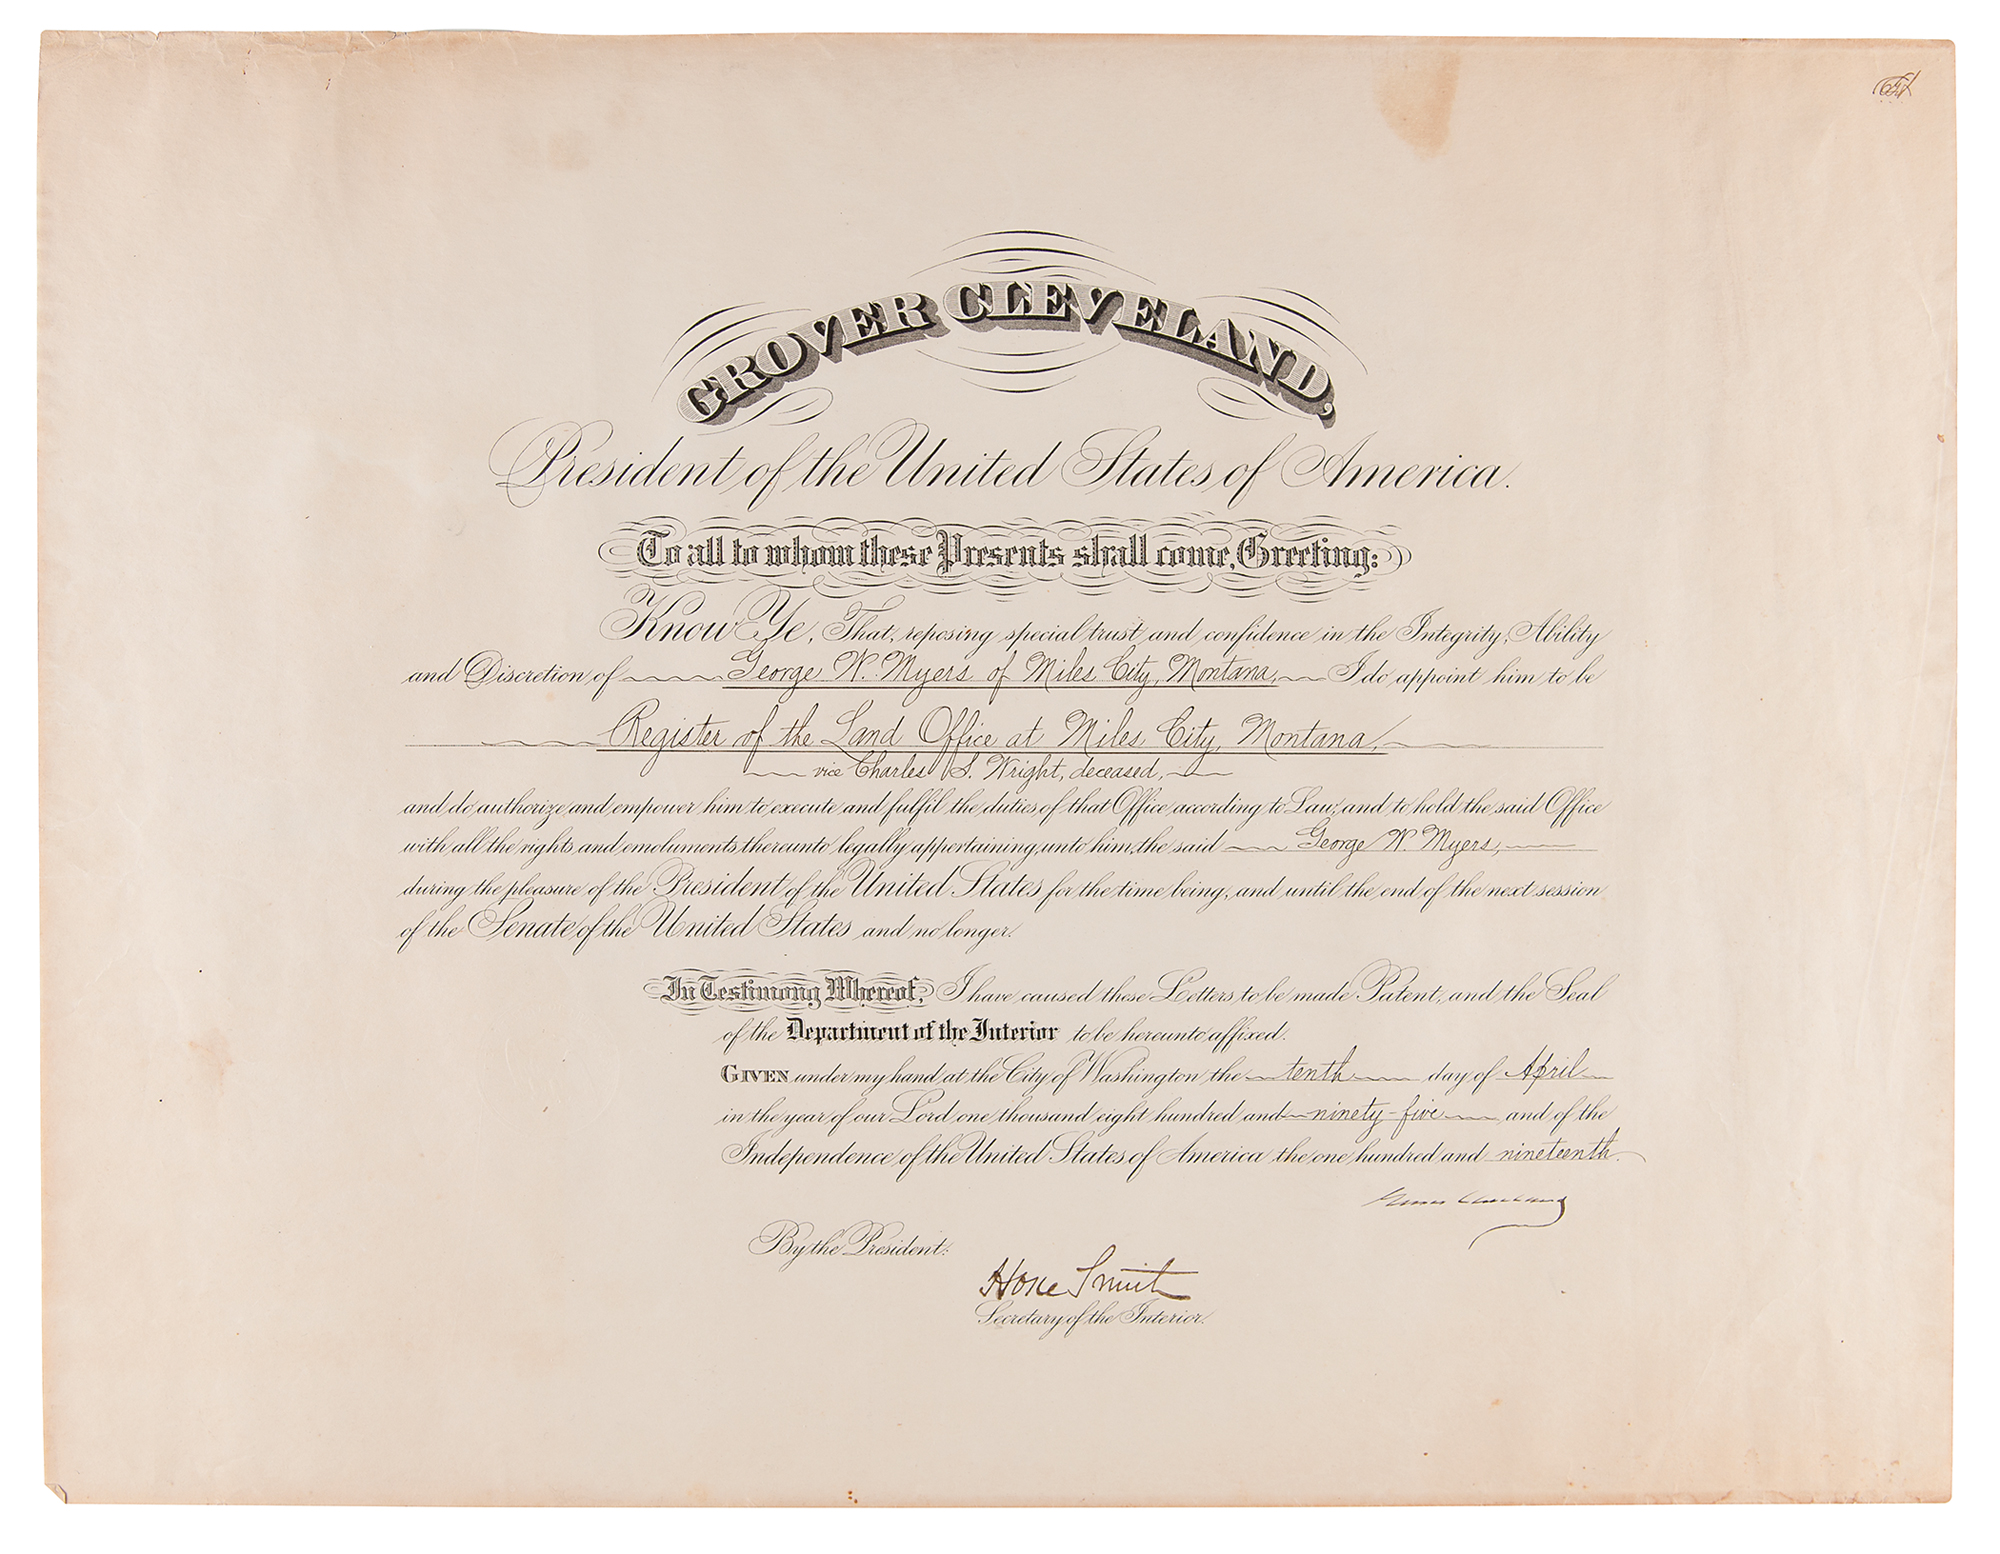 GROVER CLEVELAND,
President of the United States of America.
To all to whom these Presents shall come, Greeting:
Know Ye, That, reposing special trust and confidence in the Integrity, Ability
and Discretion of George W. Myers of Miles City, Montana, I do appoint him to be
Register of the Land Office at Miles City, Montana,
vice Charles S. Wright, deceased,
and do authorize and empower him to execute and fulfil the duties of that Office according to Law; and to hold the said Office
with all the rights and emoluments thereunto legally appertaining, unto him, the said George W. Myers,
during the pleasure of the President of the United States for the time being, and until the end of the next session
of the Senate of the United States and no longer.
In Testimony Whereof, I have caused these Letters to be made Patent, and the Seal
of the Department of the Interior to be hereunto affixed.
GIVEN under my hand at the City of Washington the tenth day of April
in the year of our Lord one thousand eight hundred and ninety-five and of the
Independence of the United States of America the one hundred and nineteenth.
Grover Cleveland
By the President:
Hoke Smith
Secretary of the Interior.